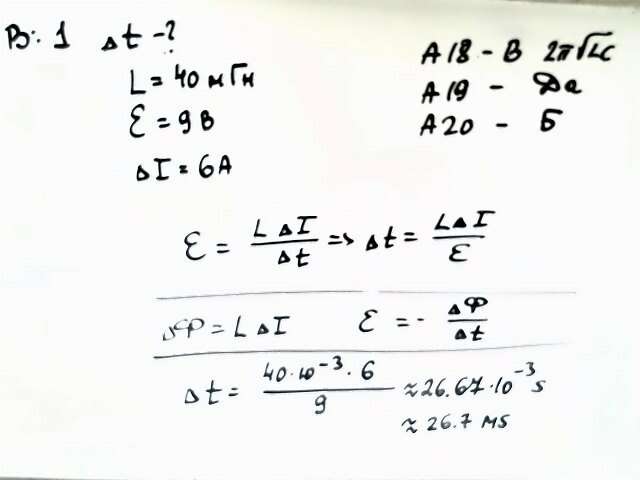 В: 1 Δt -?
L = 40 мГн
Ɛ = 9 В
ΔI = 6А
А18 - В 2π√LC
А19 - Да
А20 - Б
Ɛ = LΔI/Δt => Δt = LΔI/Ɛ
ΔФ = LΔI Ɛ = - ΔФ/Δt
Δt = 40·10⁻³·6/9 ≈ 26.67·10⁻³ s
≈ 26.7 ms